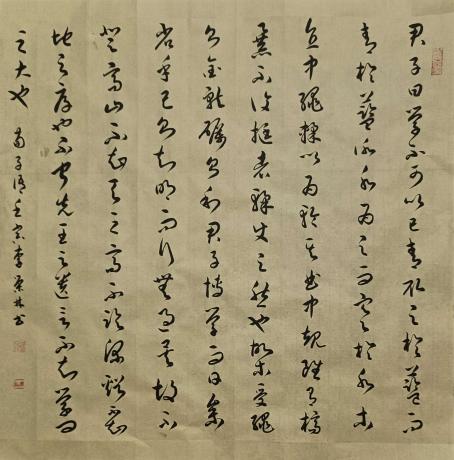 君子曰学不可以已青取之於蓝而
青於蓝冰水为之而寒於水木
直中绳輮以为轮其曲中规虽有槁
暴不复挺者輮使之然也故木受绳
则金就砺则利君子博学而日参
省乎己则知明而行无过矣故不
登高山不知天之高不临深谿不知
地之厚也不闻先王之遗言不知学问
之大也 荀子语壬寅李林书